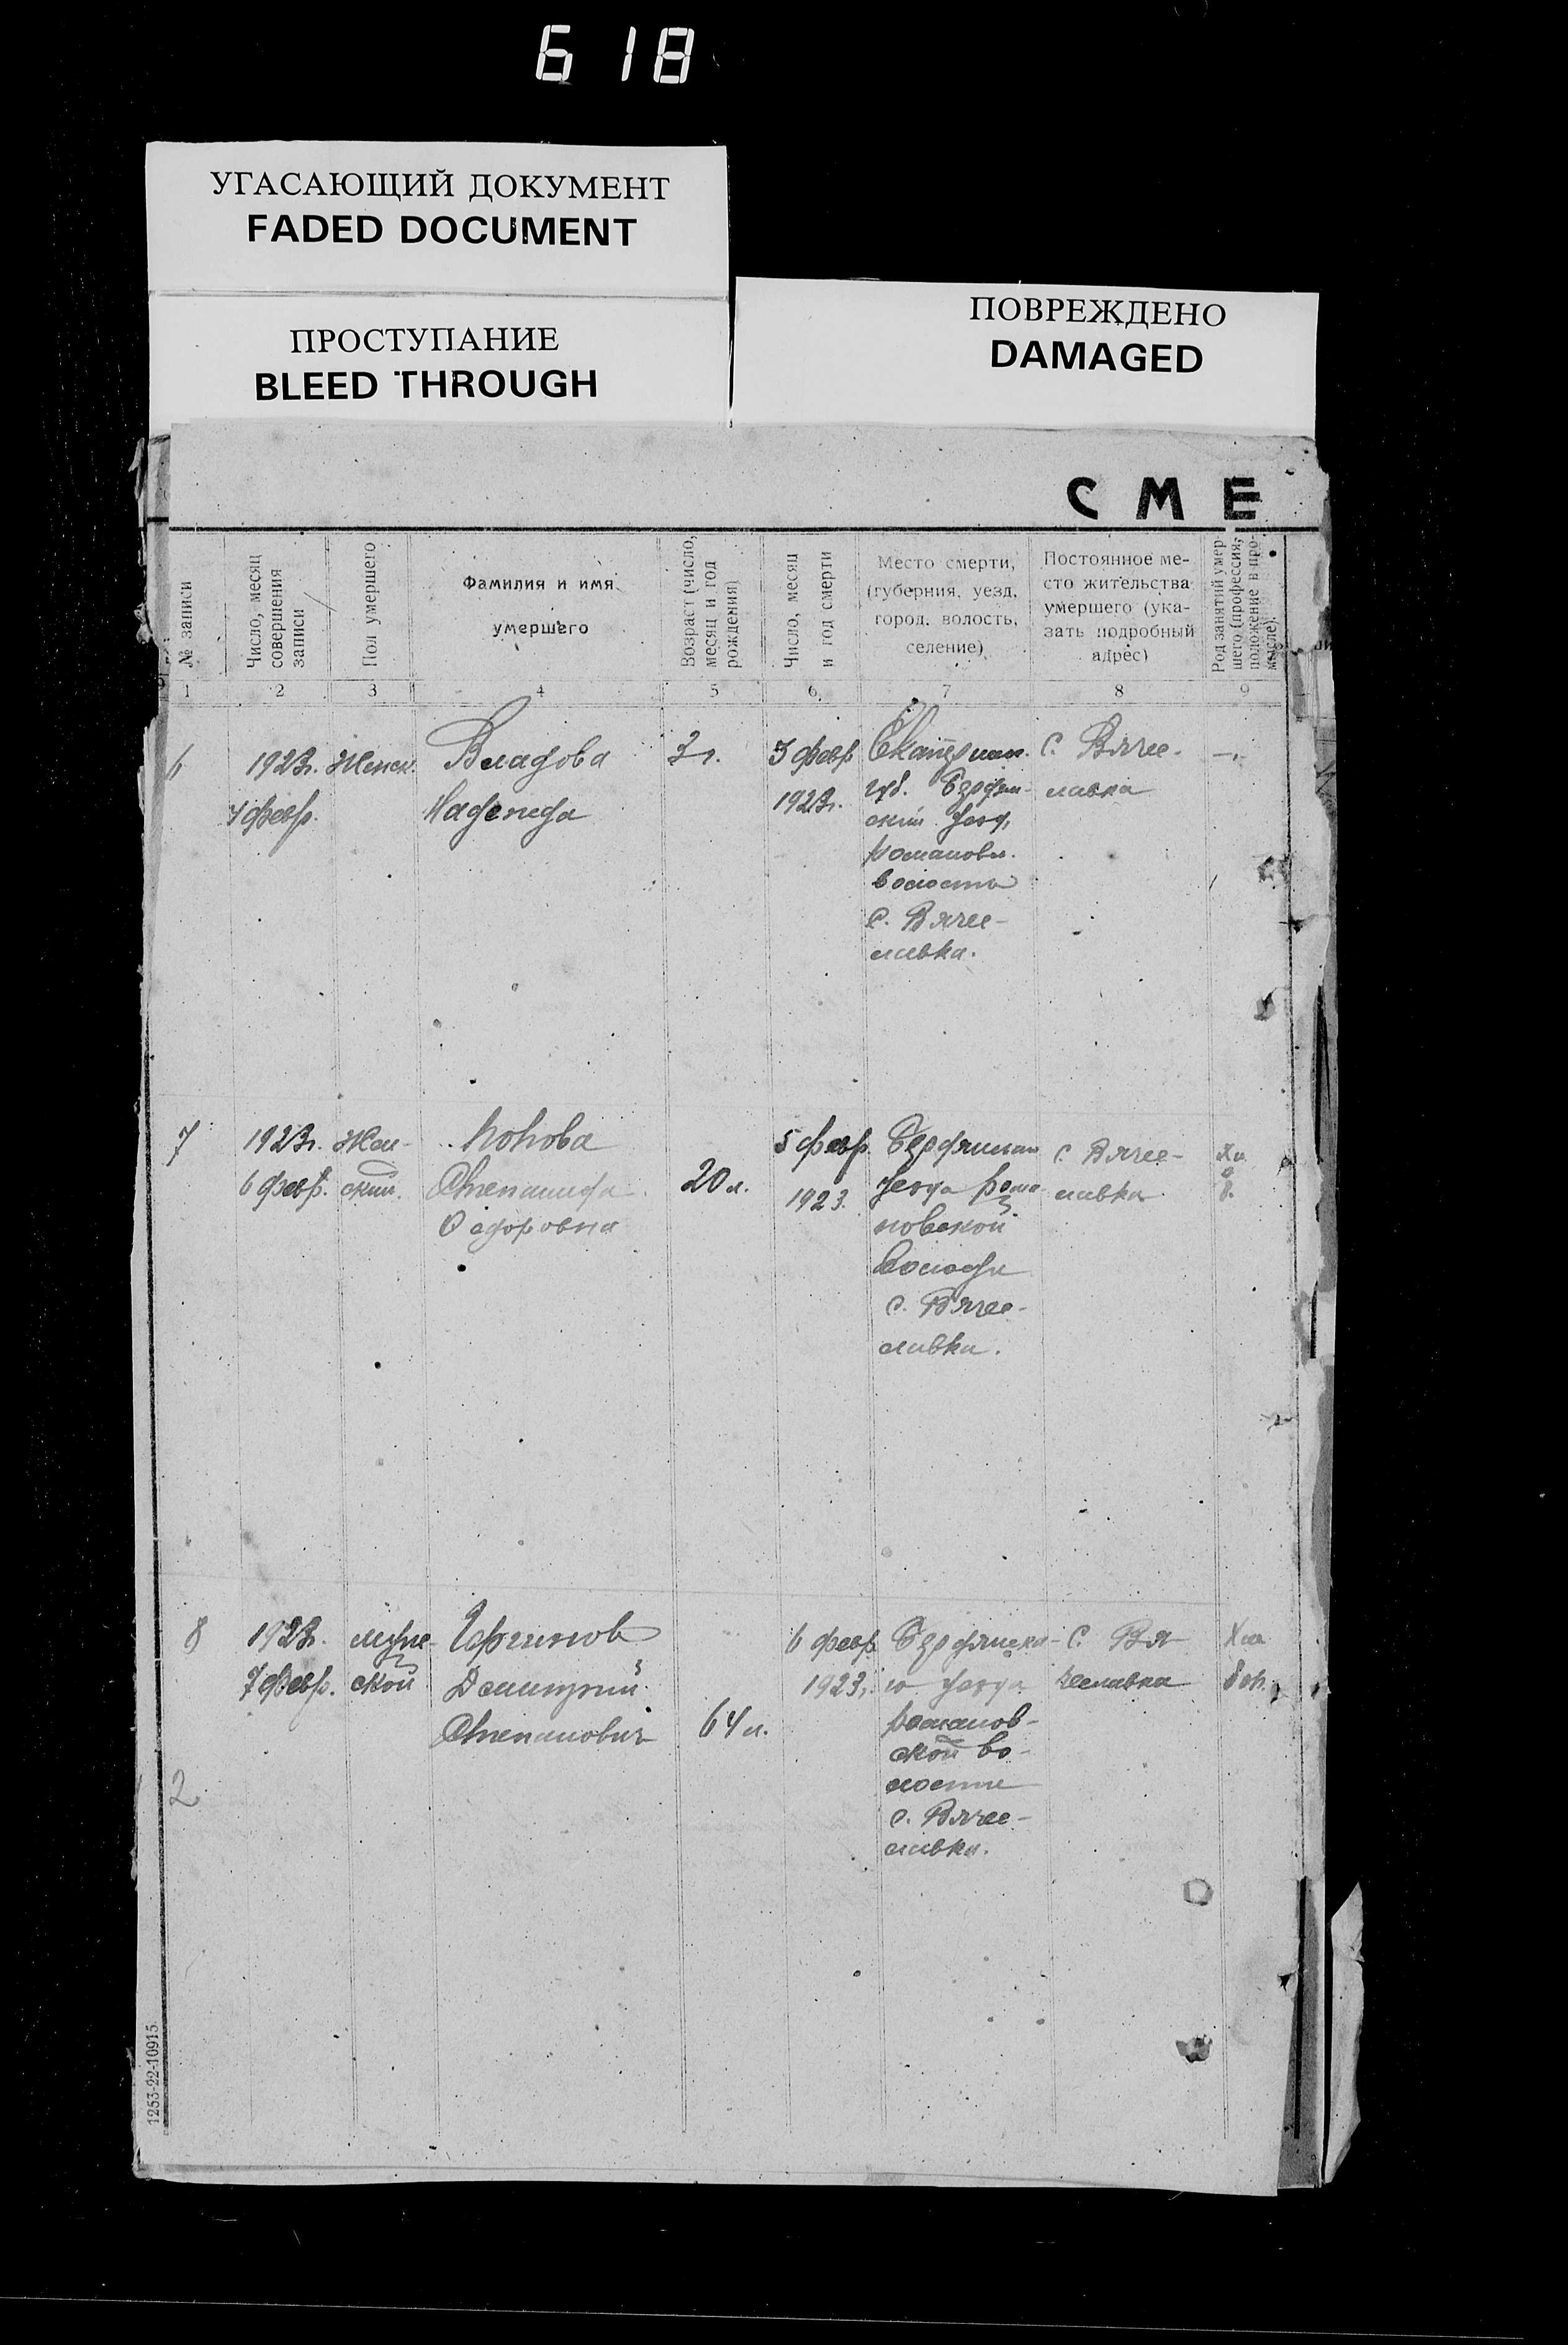 618
УГАСАЮЩИЙ ДОКУМЕНТ
FADED DOCUMENT
ПРОСТУПАНИЕ
BLEED THROUGH
ПОВРЕЖДЕНО
DAMAGED
СМЕ
№ записи
Число, месяц
совершения
записи
Пол умершего
Фамилия и имя
умершего
Возраст (число,
месяц и год
рождения)
Число, месяц
и год смерти
Место смерти,
(губерния, уезд,
город, волость,
селение)
Постоянное ме-
сто жительства
умершего (ука-
зать подробный
адрес)
Род занятий умер-
шего (профессия,
положение в про-
мысле).
1 2 3 4 5 6 7 8 9
6
1923г.
4 февр.
Женск.
Владова
Надежда
3 г.
3 февр
1923г.
губ.
Романовск.
волость
с. Вячес-
лавка.
с. Вячес-
лавка
7
1923г.
6 февр.
Жен-
ский.
Попова
Степанида
20 л.
5 февр.
1923.
уезда Рома-
новской
с. Вячес-
лавка.
с. Вячес-
лавка
8
1923г.
7 февр.
муже-
ской
Дмитрий
Степанович
64 л.
6 февр
1923г.
Бердянско-
го уезда
Романов-
ской во-
лости
с. Вячес-
лавка.
с. Вя-
чеславка
2
1253-22-10915